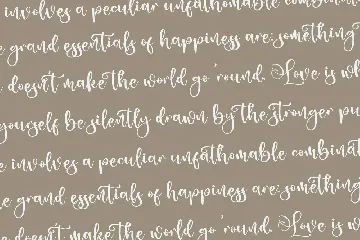 involves a peculiar unfathomable combina
grand essentials of happiness are: something
doesn't make the world go 'round. Love is wh
yourself be silently drawn by the stronger pu
involves a peculiar unfathomable combinat
grand essentials of happiness are: something
doesn't make the world go 'round. Love is w